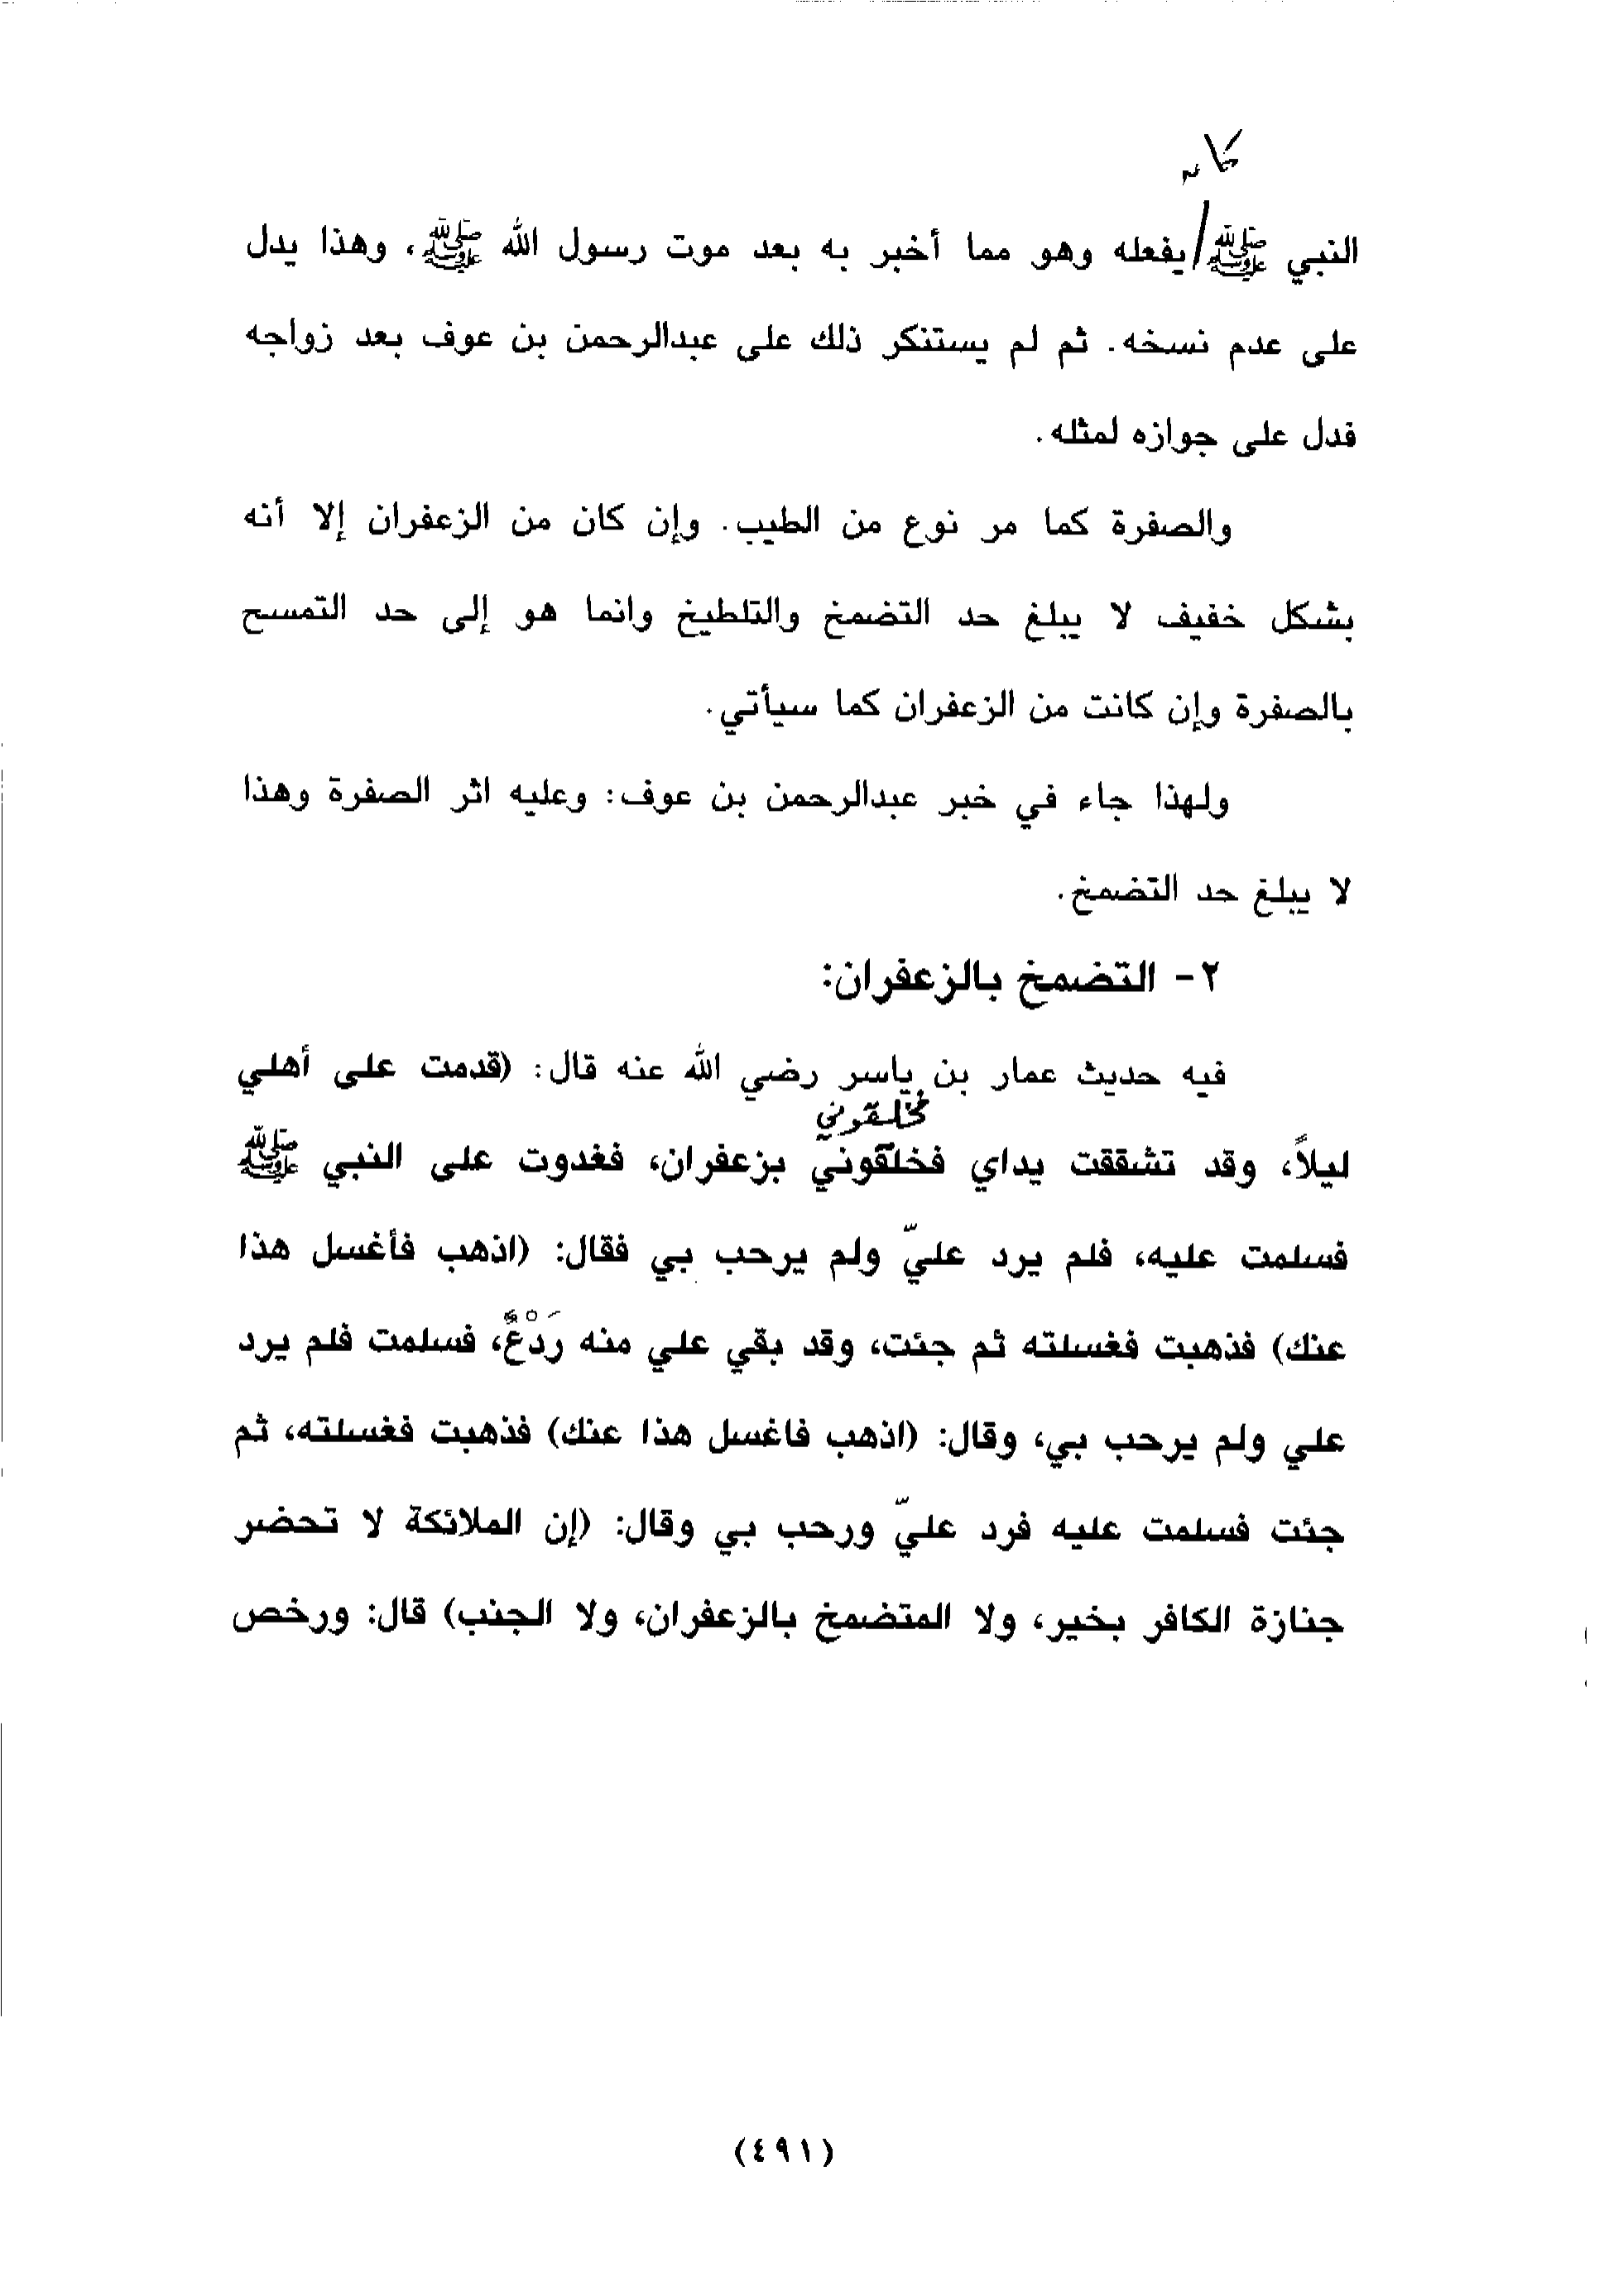 كان
النبي ﷺ/يفعله وهو مما أخبر به بعد موت رسول الله ﷺ، وهذا يدل
على عدم نسخه. ثم لم يستنكر ذلك على عبدالرحمن بن عوف بعد زواجه
فدل على جوازه لمثله.
والصفرة كما مر نوع من الطيب. وإن كان من الزعفران إلا أنه
بشكل خفيف لا يبلغ حد التضمخ والتلطيخ وانما هو إلى حد التمسح
بالصفرة وإن كانت من الزعفران كما سيأتي.
ولهذا جاء في خبر عبدالرحمن بن عوف: وعليه اثر الصفرة وهذا
لا يبلغ حد التضمخ.
٢- التضمخ بالزعفران:
فيه حديث عمار بن ياسر رضي الله عنه قال: (قدمت على أهلي
فخلقوني
ليلاً، وقد تشققت يداي فخلّقوني بزعفران، فغدوت على النبي ﷺ
فسلمت عليه، فلم يرد عليّ ولم يرحب بي فقال: (اذهب فأغسل هذا
عنك) فذهبت فغسلته ثم جئت، وقد بقي علي منه رَدْعٌ، فسلمت فلم يرد
علي ولم يرحب بي، وقال: (اذهب فاغسل هذا عنك) فذهبت فغسلته، ثم
جئت فسلمت عليه فرد عليّ ورحب بي وقال: (إن الملائكة لا تحضر
جنازة الكافر بخير، ولا المتضمخ بالزعفران، ولا الجنب) قال: ورخص
(٤٩١)